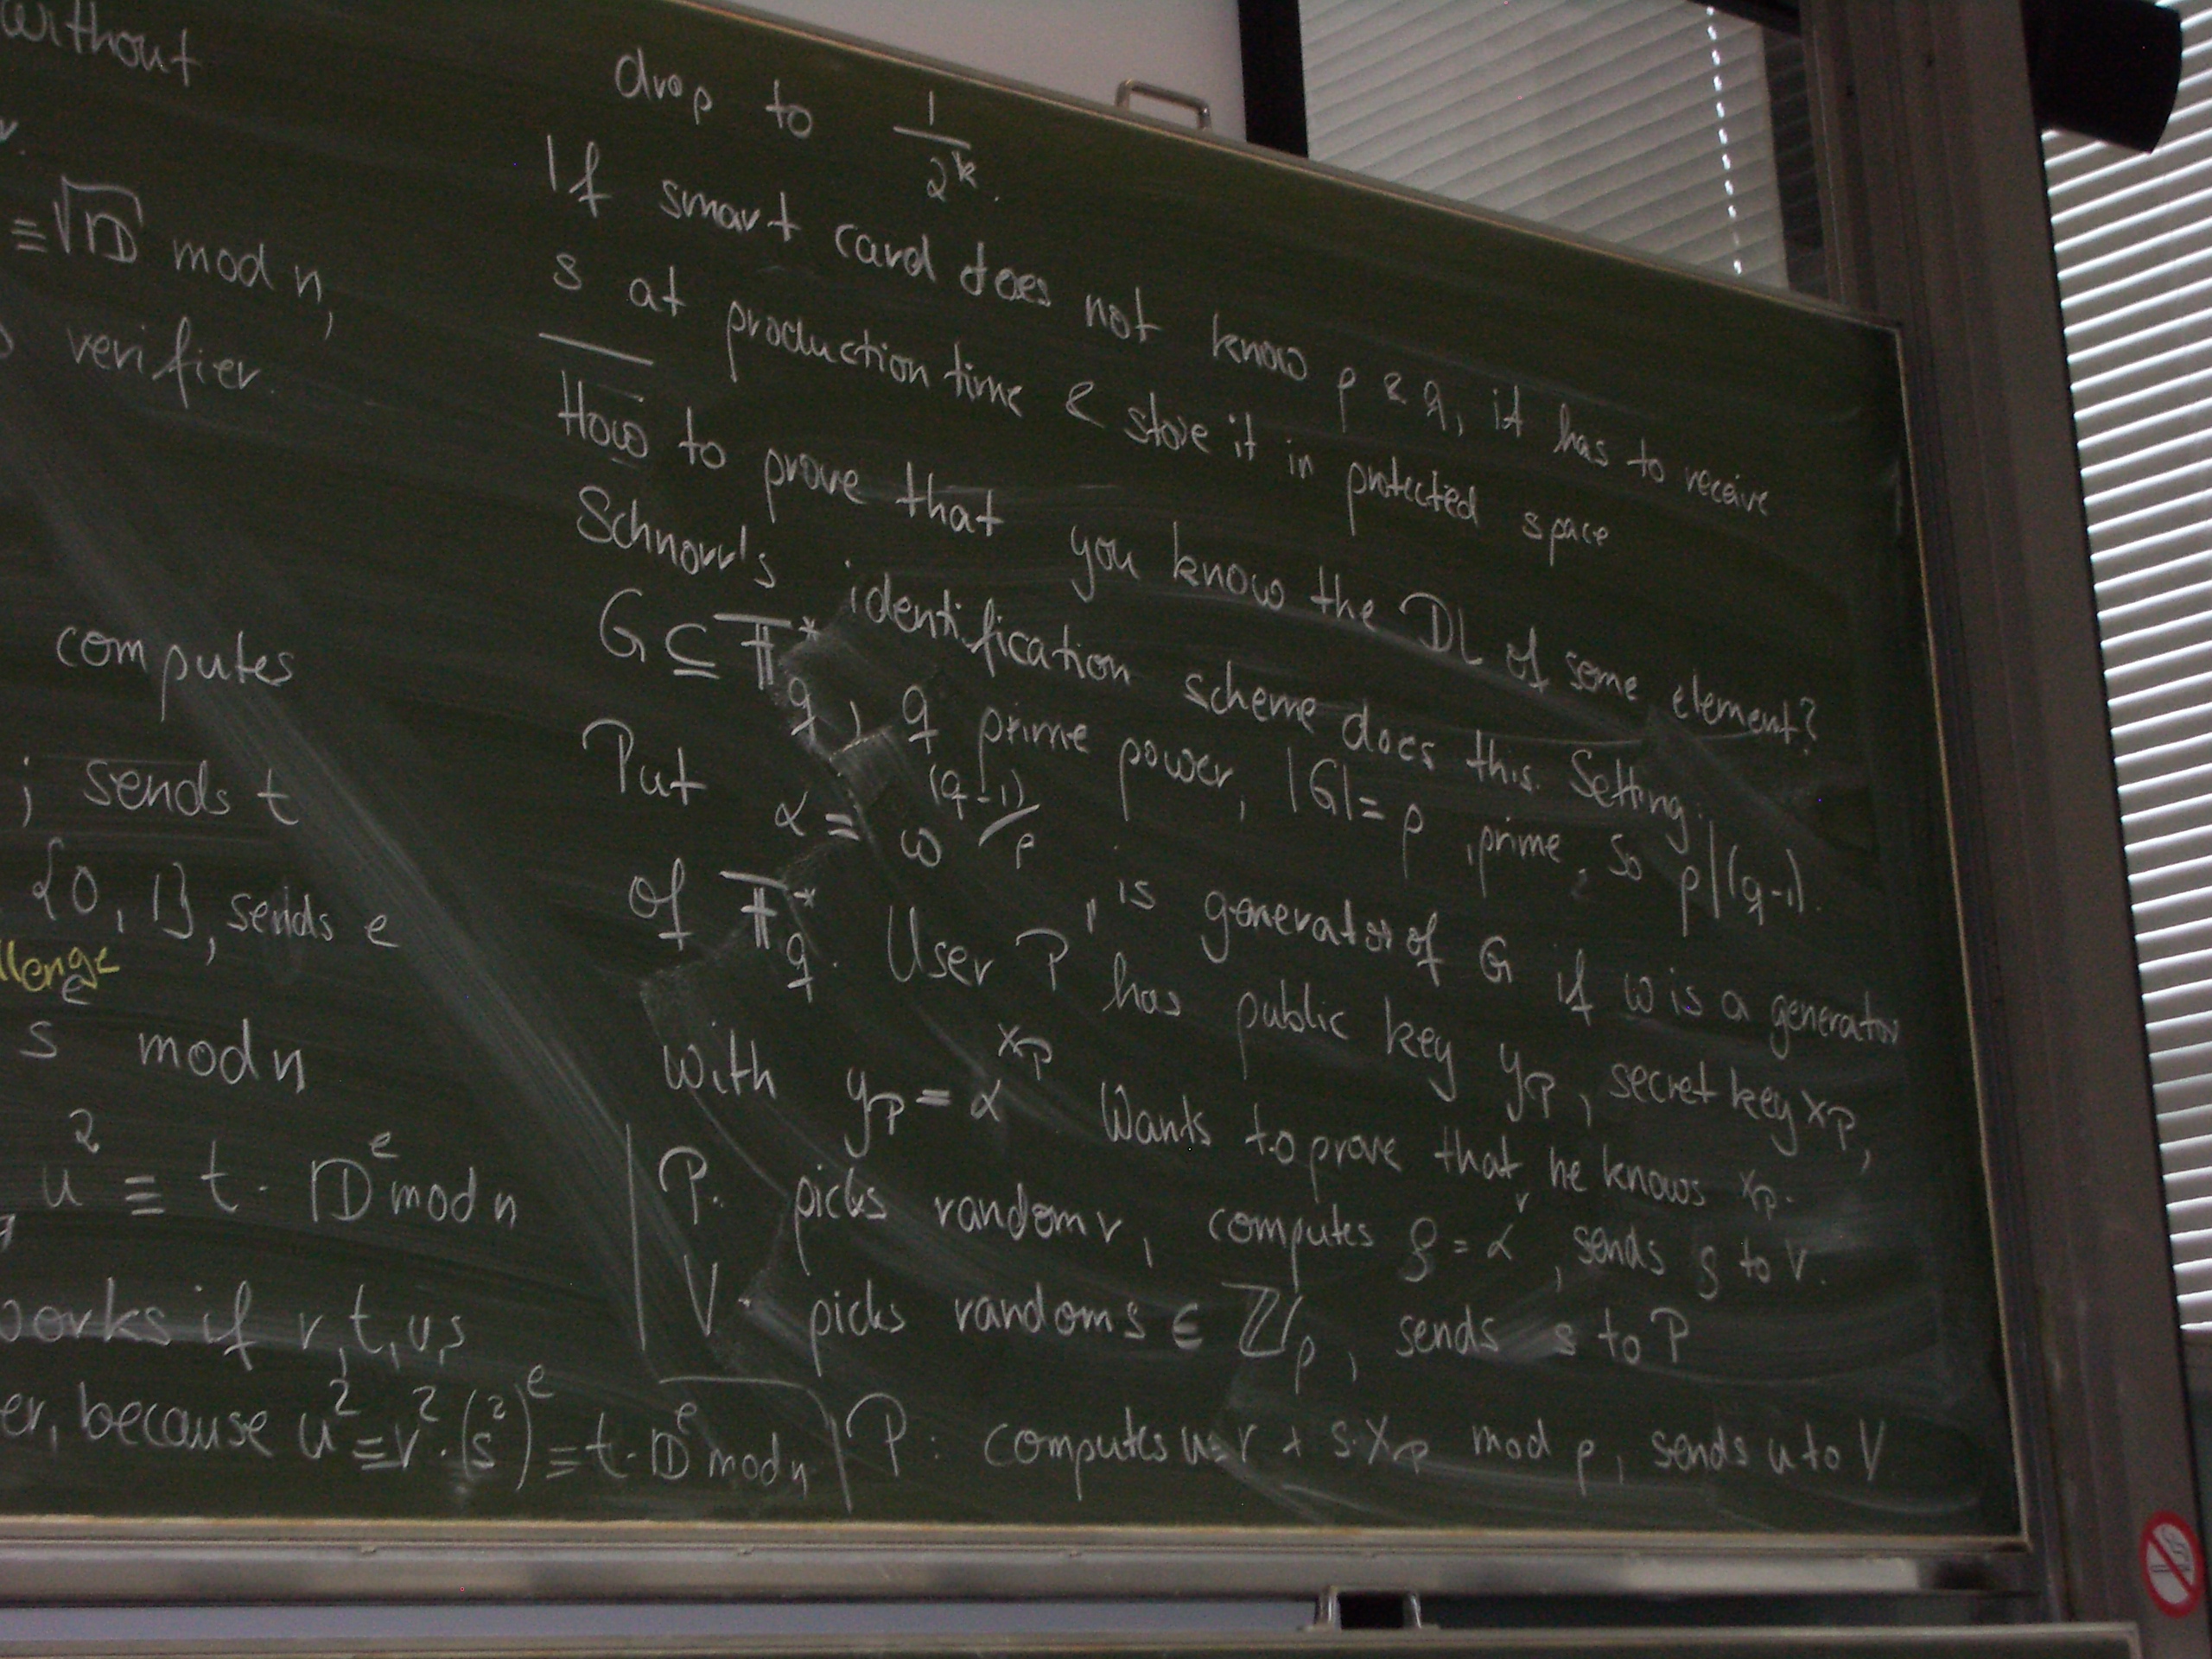 without
≡√ID mod n,
verifier.
computes
; sends t
{0, 1}, sends e
llenge
s^e mod n
u² ≡ t · ID^e mod n
works if r, t, u, s
er, because u² ≡ r² · (s²)^e ≡ t · ID^e mod n
drop to 1/2^k.
If smart card does not know p & q, it has to receive
s at production time & store it in protected space
How to prove that you know the DL of some element?
Schnorr's identification scheme does this. Setting:
G ⊆ 𝔽*_q, q prime power, |G| = p, prime, so p | (q-1).
Put α = ω^((q-1)/p), is generator of G if ω is a generator
of 𝔽*_q. User P has public key y_P, secret key x_P,
with y_P = α^(x_P) Wants to prove that he knows x_P.
P. picks random r, computes ρ = α^r, sends ρ to V.
V. picks random s ∈ ℤ_p, sends s to P
P: computes u = r + s·x_P mod p, sends u to V